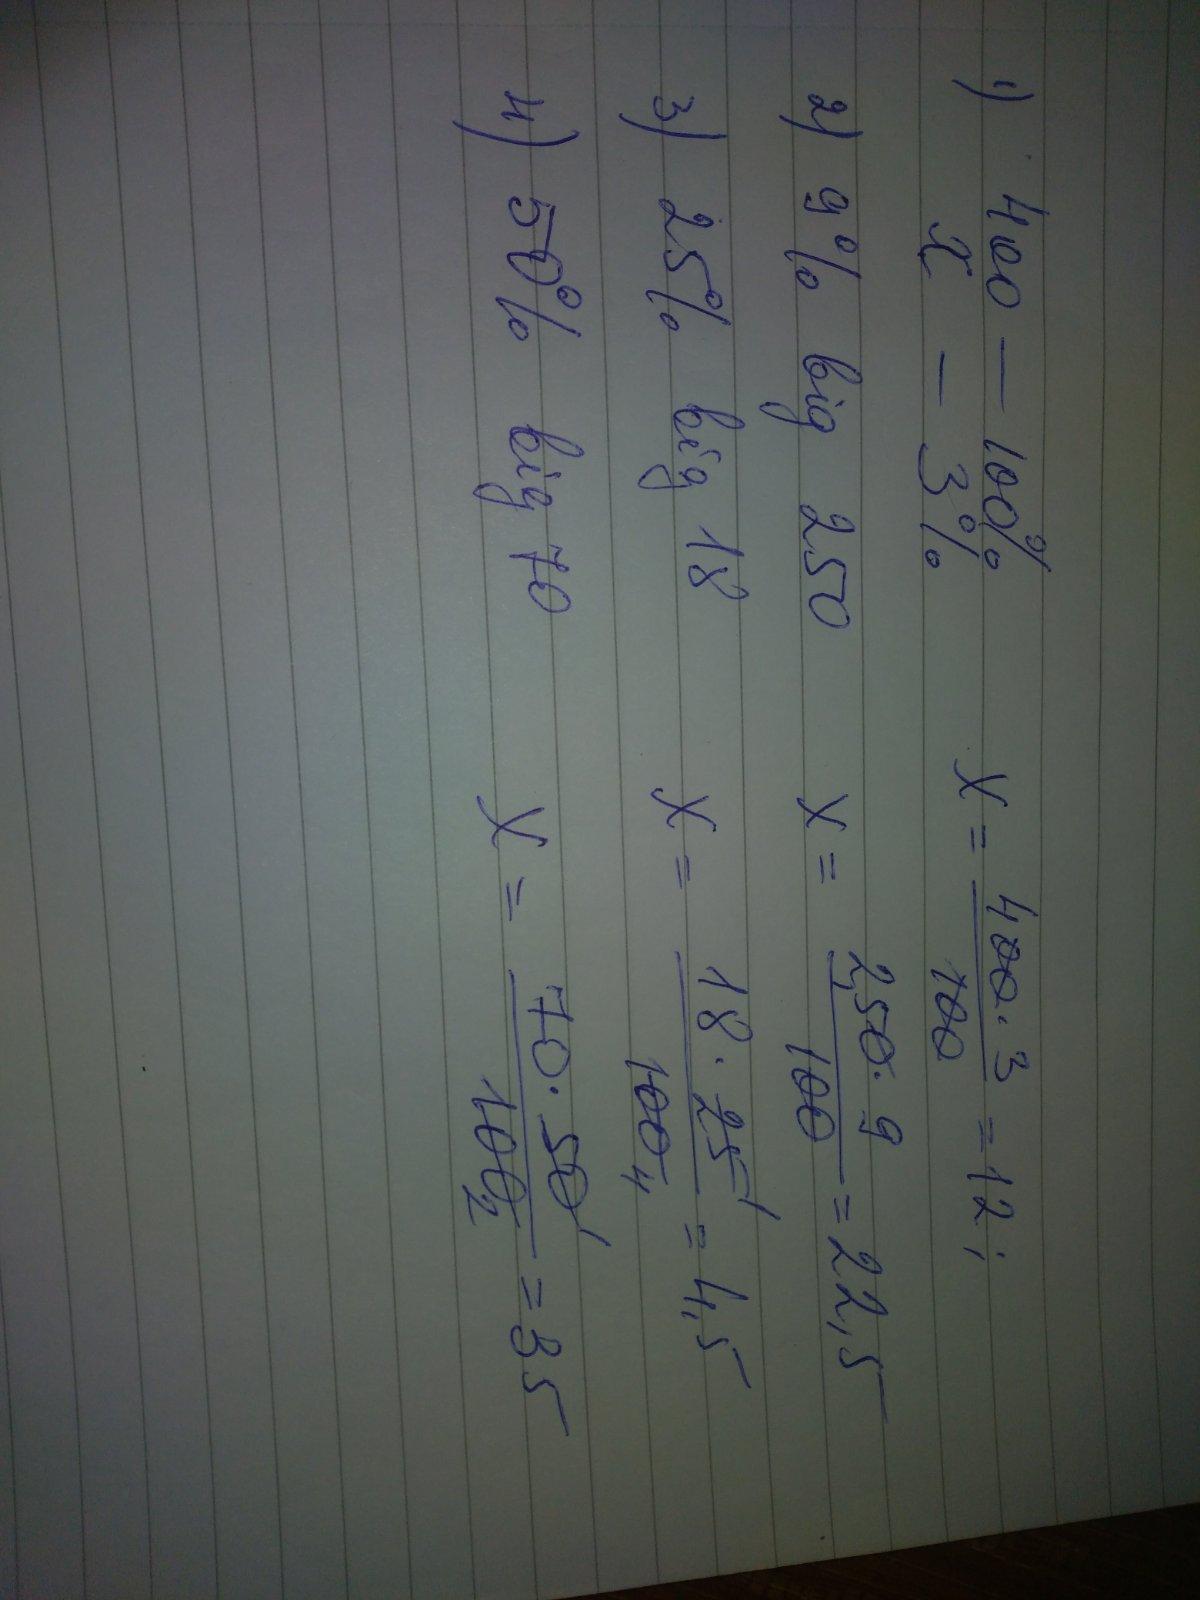 1) 400 — 100% x = 400·3/100 = 12;
x — 3%
2) 9% від 250 x = 250·9/100 = 22,5
3) 25% від 18 x = 18·25 1/100 4 = 4,5
4) 50% від 70 x = 70·50 1/100 2 = 35